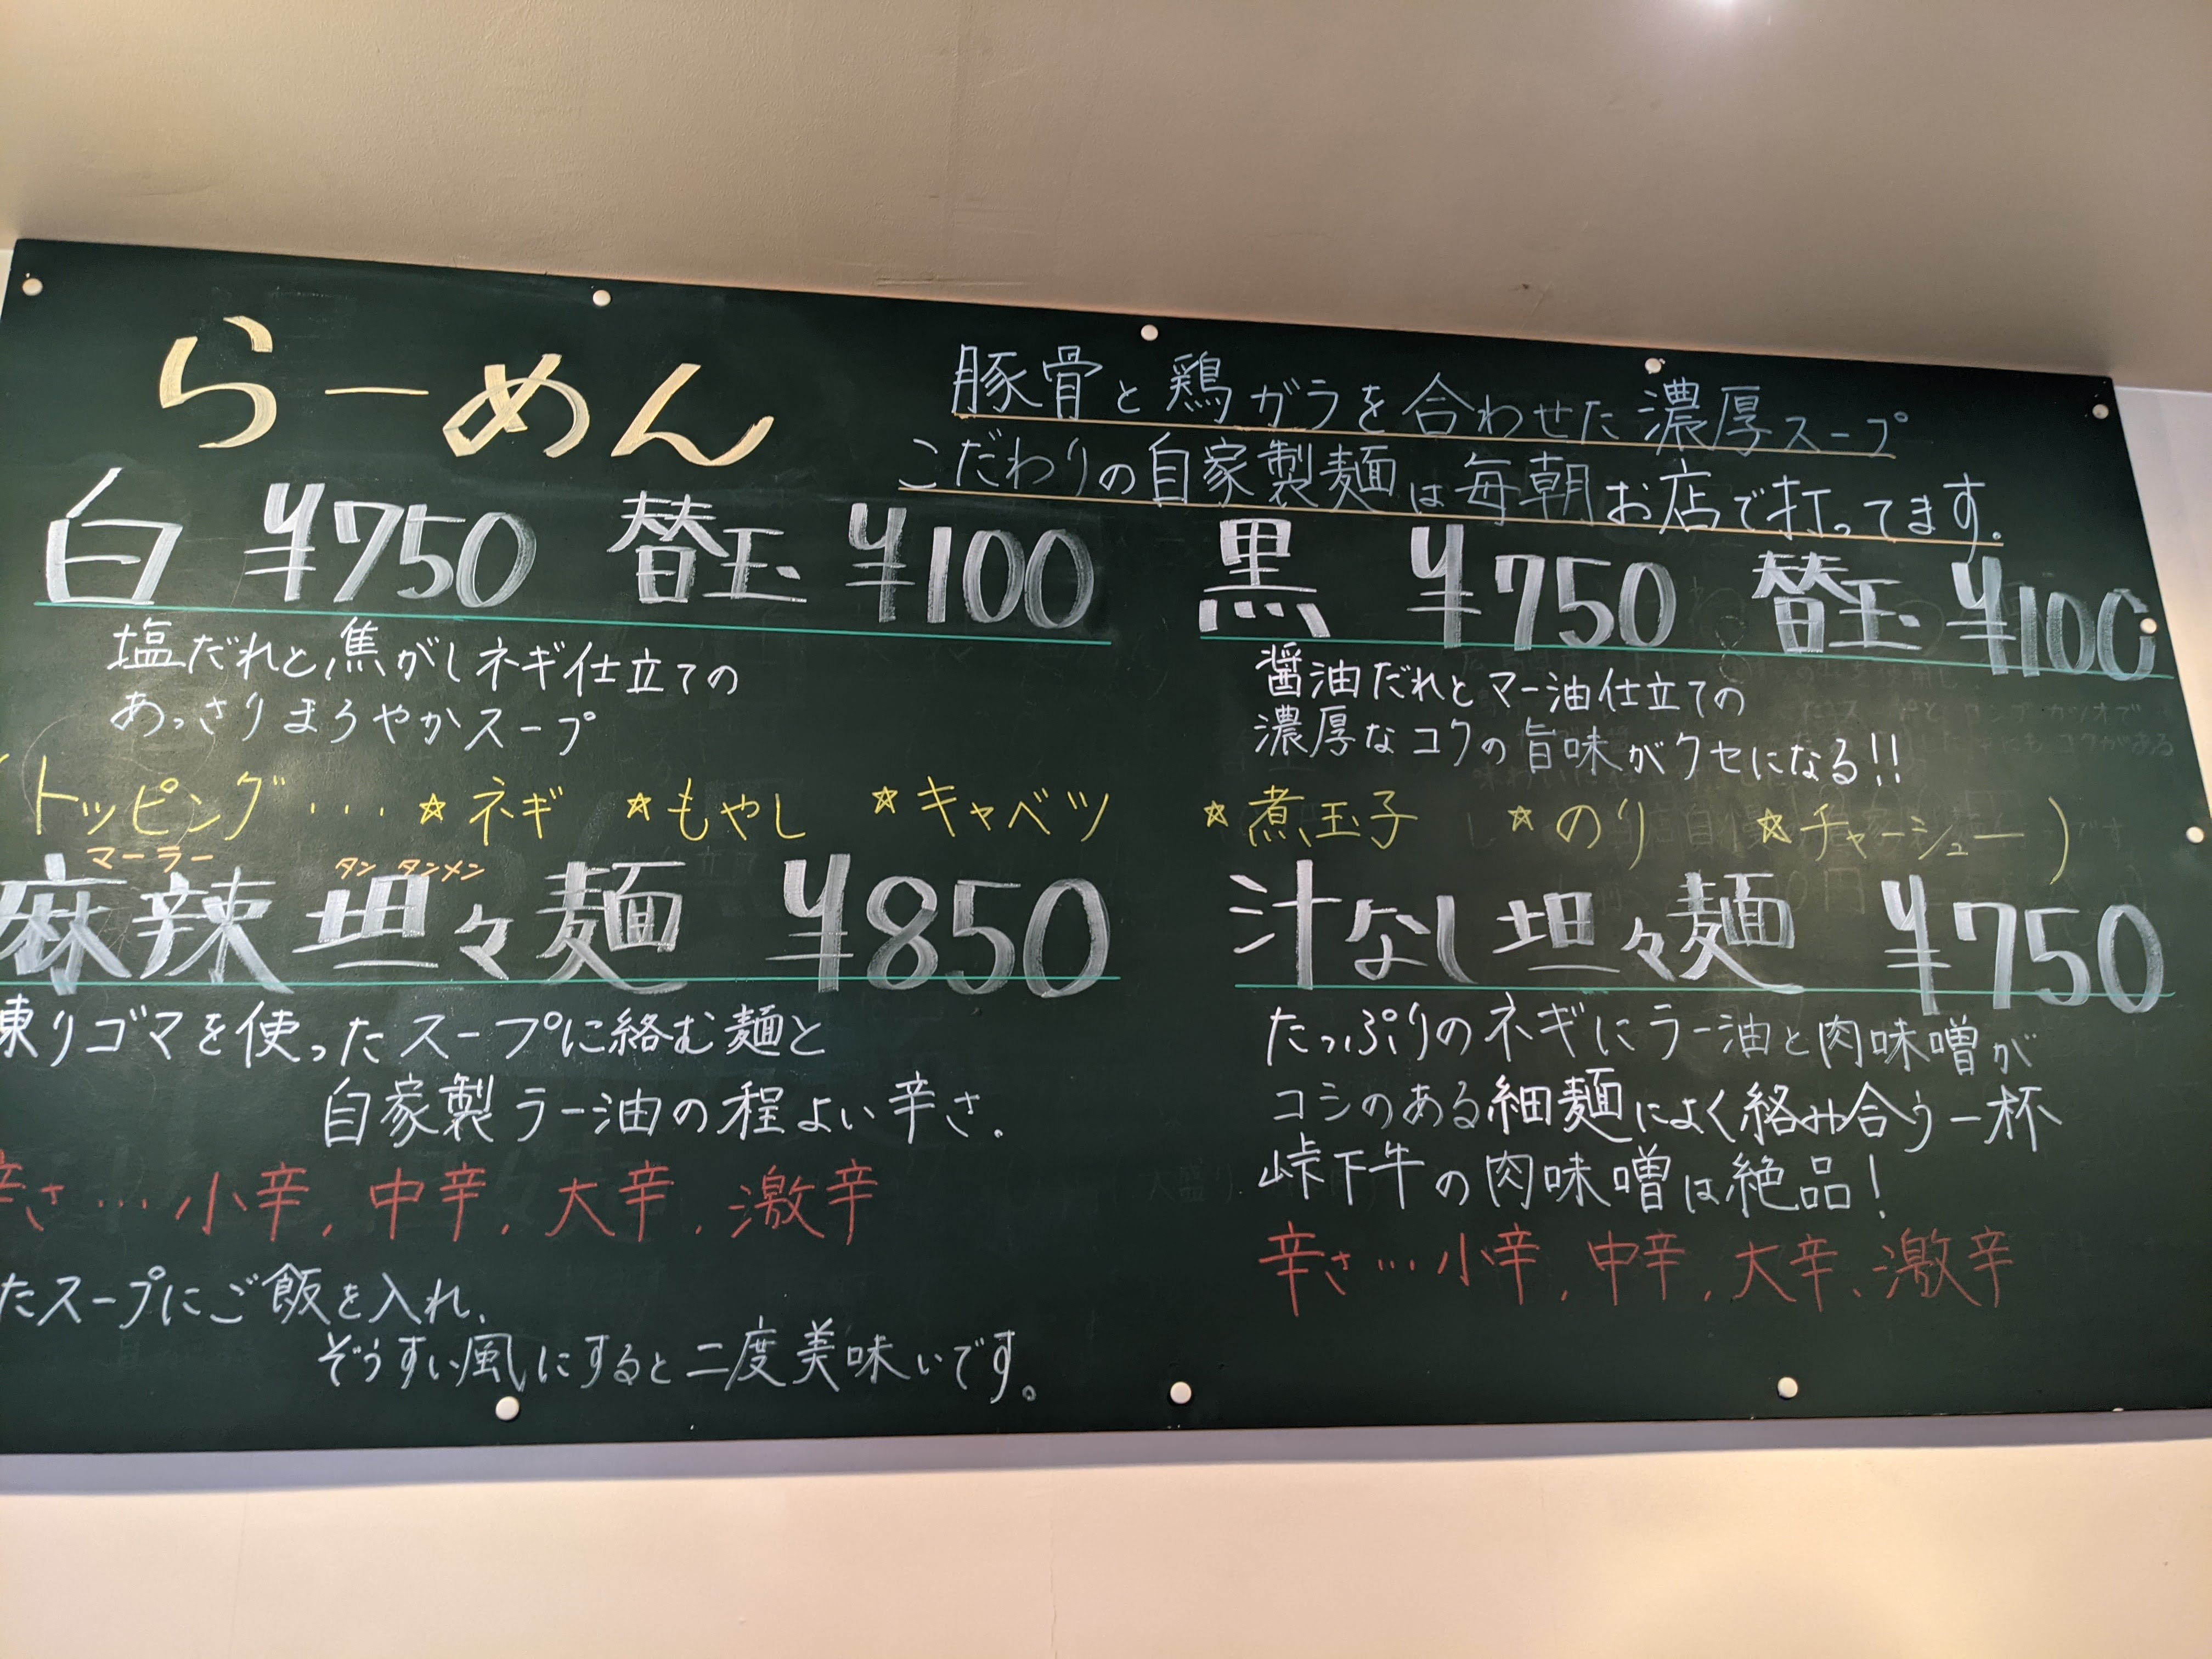 らーめん
豚骨と鶏ガラを合わせた濃厚スープ
こだわりの自家製麺は毎朝お店で打ってます。
白 ¥750 替玉 ¥100
塩だれと焦がしネギ仕立ての
あっさりまろやかスープ
黒 ¥750 替玉 ¥100
醤油だれとマー油仕立ての
濃厚なコクの旨味がクセになる!!
(トッピング・・・☆ネギ ☆もやし ☆キャベツ ☆煮玉子 ☆のり ☆チャーシュー)
マーラー タンタンメン
麻辣坦々麺 ¥850
練りゴマを使ったスープに絡む麺と
自家製ラー油の程よい辛さ.
辛さ…小辛,中辛,大辛,激辛
たスープにご飯を入れ、
ぞうすい風にすると二度美味いです。
汁なし坦々麺 ¥750
たっぷりのネギにラー油と肉味噌が
コシのある細麺によく絡み合う一杯
峠下牛の肉味噌は絶品!
辛さ…小辛,中辛,大辛、激辛